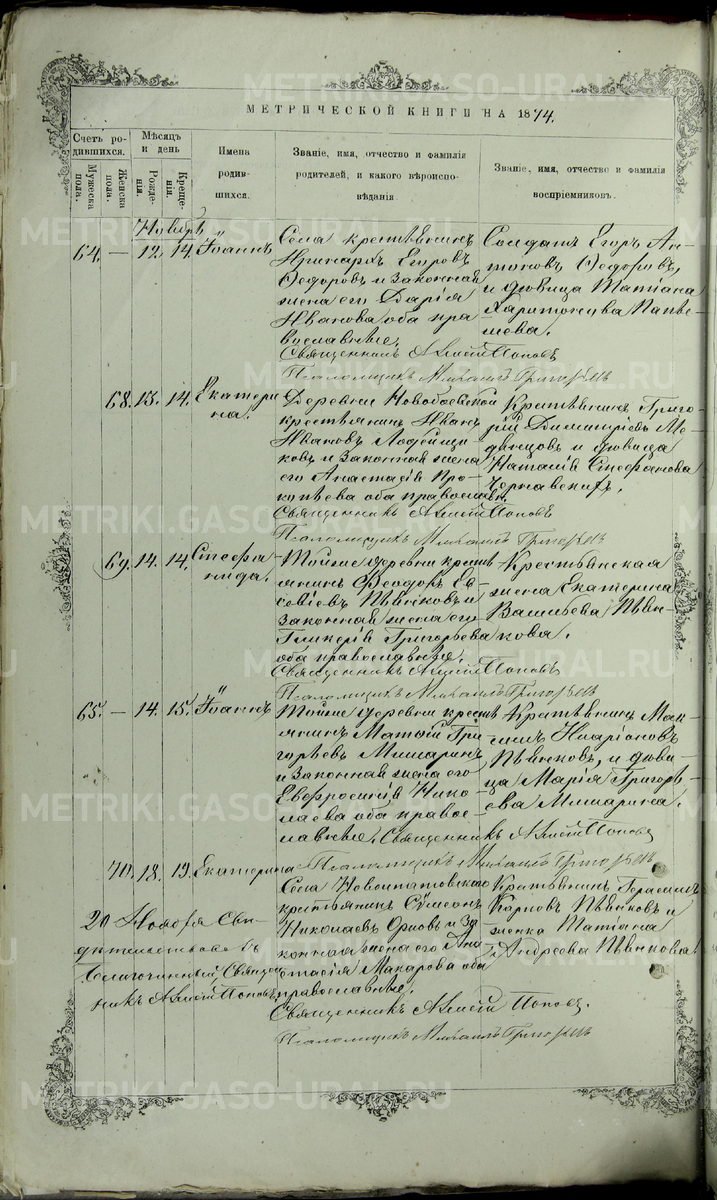 МЕТРИЧЕСКОЙ КНИГИ НА 1874.
Счетъ ро-
дившихся.
Мужеска пола.
Женска пола.
Мѣсяцъ
и день
Рожде-
нія.
Креще-
нія.
Имена
родив-
шихся.
Званіе, имя, отчество и фамилія
родителей, и какого вѣроиспо-
вѣданія
Званіе, имя, отчество и фамилія
воспріемниковъ.
Ноябрь
64. — 12. 14. Іоаннъ
Села крестьянинъ
Егоровъ
Ѳедоровъ и законная
жена его Дарія
Иванова оба пра
вославные.
Священникъ Алексій Поповъ
Псаломщикъ Михаилъ Григорьевъ
Солдатъ Егоръ Ан
тоновъ Ѳедоровъ,
и дѣвица Татіана
Харитонова
68. 13. 14. Екатери
на.
Деревни
крестьянинъ Иванъ
Ивановъ
и законная жена
его Анастасія Про
копьева оба православн.
Священникъ Алексій Поповъ
Псаломщикъ Михаилъ Григорьевъ
Крестьянинъ Григо
рій Димитріевъ Ме
дянцовъ и дѣвица
Наталія Стефанова
69. 14. 14. Стефа
нида.
Тойже деревни кресть
янинъ Ѳеодоръ Ев-
севіевъ Пьянковъ и
законная жена его
Гликерія Григорьева
оба православные.
Священникъ Алексій Поповъ
Псаломщикъ Михаилъ Григорьевъ
Крестьянская
жена Екатерина
Васильева Пьян
кова.
65. — 14. 15. Іоаннъ
Тойже деревни кресть
янинъ Матѳій Гри
горьевъ Мишаринъ
и законная жена его
Евфросинія Нико
лаева оба правос-
лавные. Священникъ Алексій Поповъ
Псаломщикъ Михаилъ Григорьевъ
Крестьянинъ Мак
симъ Иларіоновъ
Пьянковъ, и дѣви
ца Марія Григорь
ева Мишарина.
70. 18. 19. Екатерина
Села Новоипатовскаго
крестьянинъ Сѵмеонъ
Николаевъ Орловъ и за
конная жена его Ана
стасія Макарова оба
православные.
Священникъ Алексій Поповъ.
Псаломщикъ Михаилъ Григорьевъ
Крестьянинъ Герасимъ
Карповъ Пьянковъ и
женка Татіана
Андреева Пьянкова
20 Ноября Сви-
дѣтельствовалъ
Благочинный Священ
никъ Алексій Поповъ
METRIKI.GASO-URAL.RU